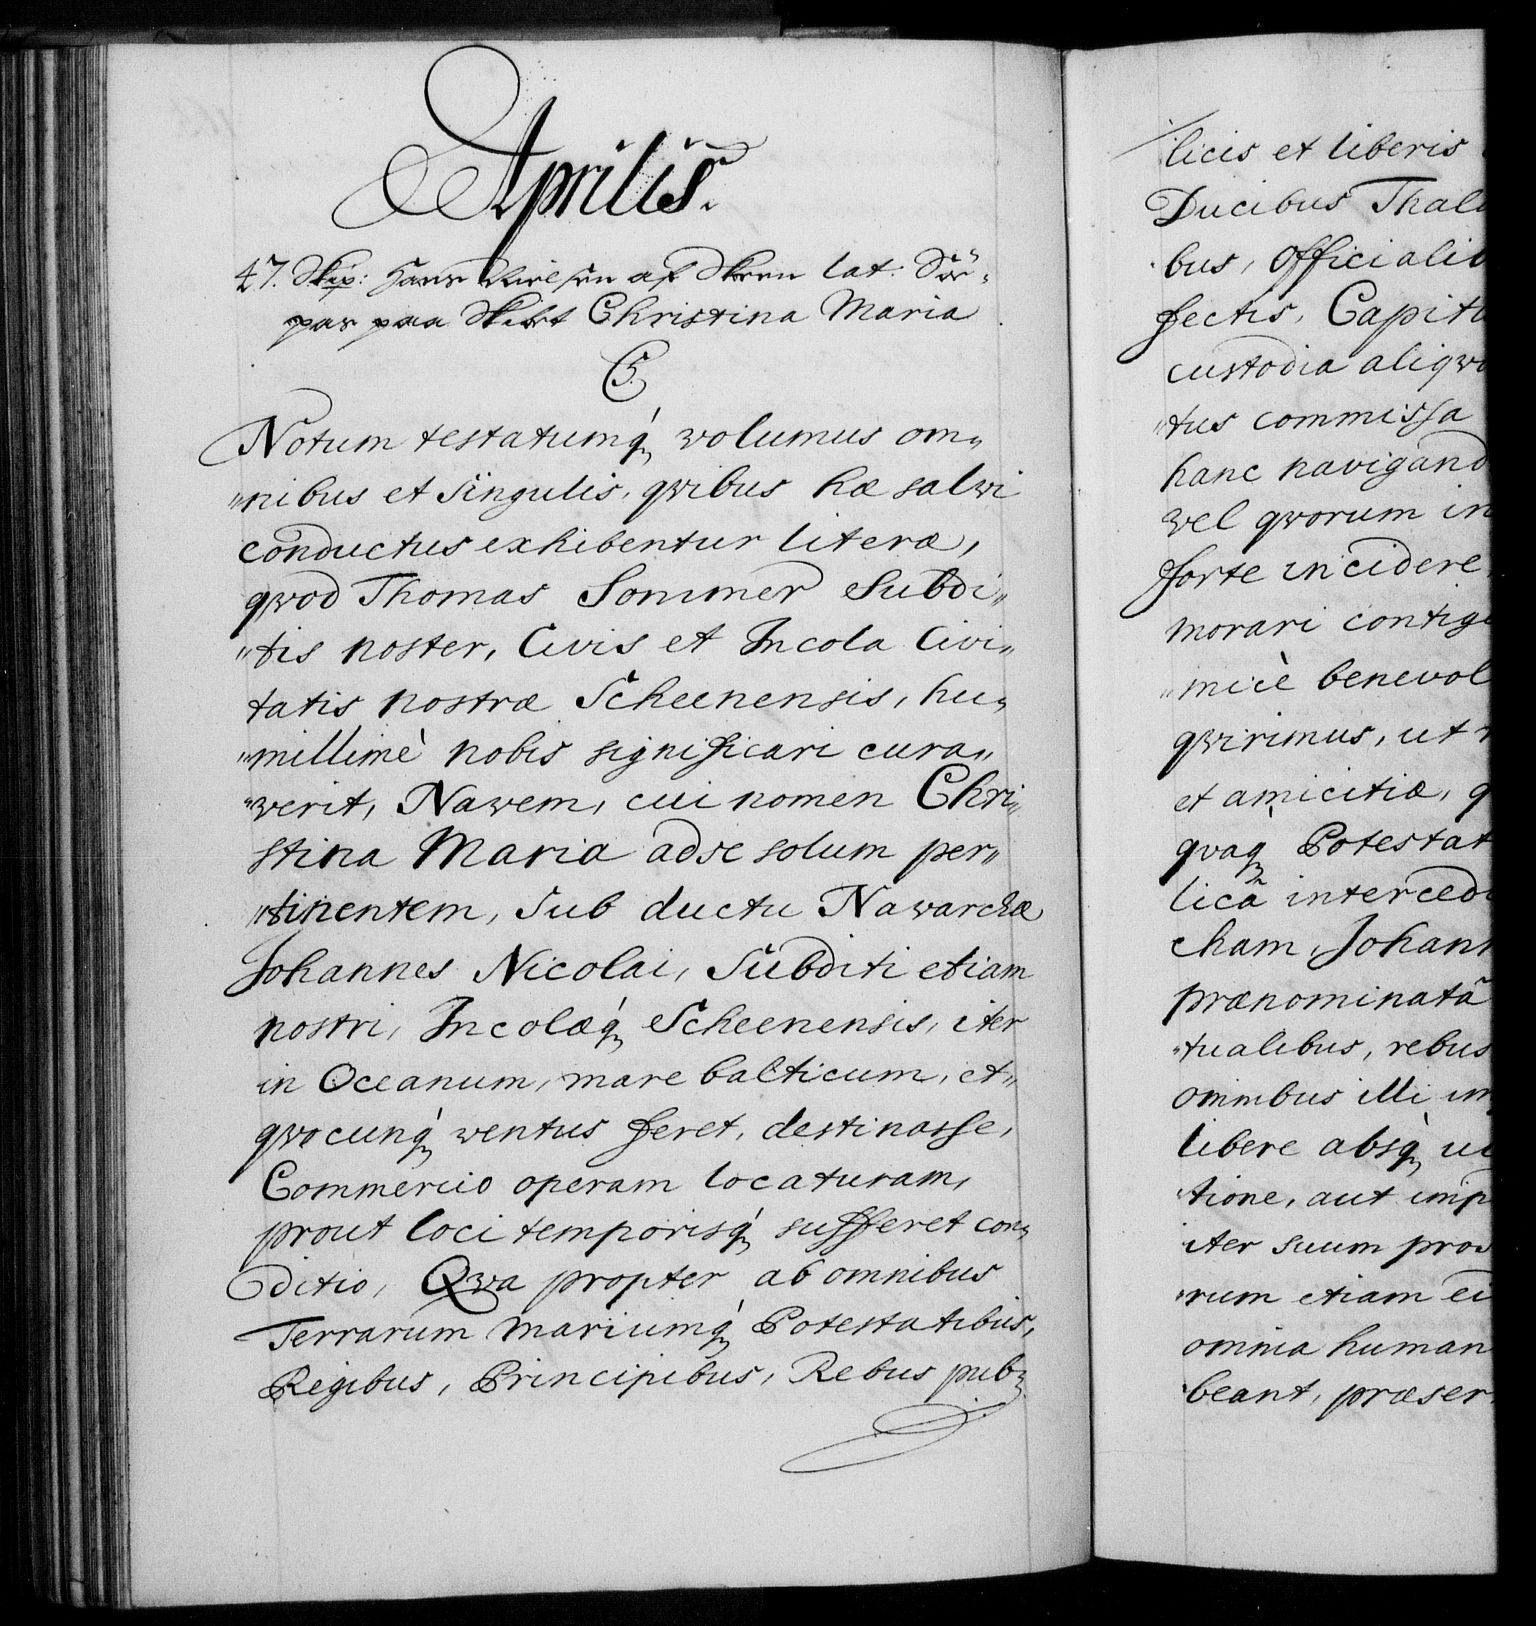 Aprilis.
47. Skip: Hans Nielsen af Skeen lat: Söe-
pas paa Skibet Christina Maria
C5.
Notum testatumq́ wolumus om„
„nibus et singulis, qvibus hæ salwi
conductus exhibentur literæ,
qvod Thomas Sommer Subdi„
„tis noster, Civis et Incola Civi„
tatis nostræ Scheenensis, hu„
„millimè nobis significari cura„
„verit, Nawem, cui nomen Chri„
stina Maria adse solum per„
„tinentem, sub ductu Nawarchæ
Johannes Nicolai, Subditi etiam
nostri, Incolæq́ Scheenensis, iter
in Oceanum, mare balticum, et„
qvocunq́ wentus feret, destinasse,
Commercio operam locaturam,
prout loci temporisq́ sufferet con„
ditio, Qva propter ab omnibus
Terrarum mariumq́ Potestatibus,
Regibus, Principibus, Rebus pub„
licis et liberis
Ducibus Thal
bus, Officialib
fectis, Capit
custodia aliqv
„tus commissa
hanc navigand
wel qvorum in
forte incidere
morari contig
„micè benevol
qvirimus, ut
et amicitiæ, q
qvaq́ Potestat
licã interced
cham, Johann
prænominatã
„tualibus, rebus
omnibus illi im
libere absq́ u
tione, aut imp
iter suum pro
„rum etiam ei
omnia human
beant, præser